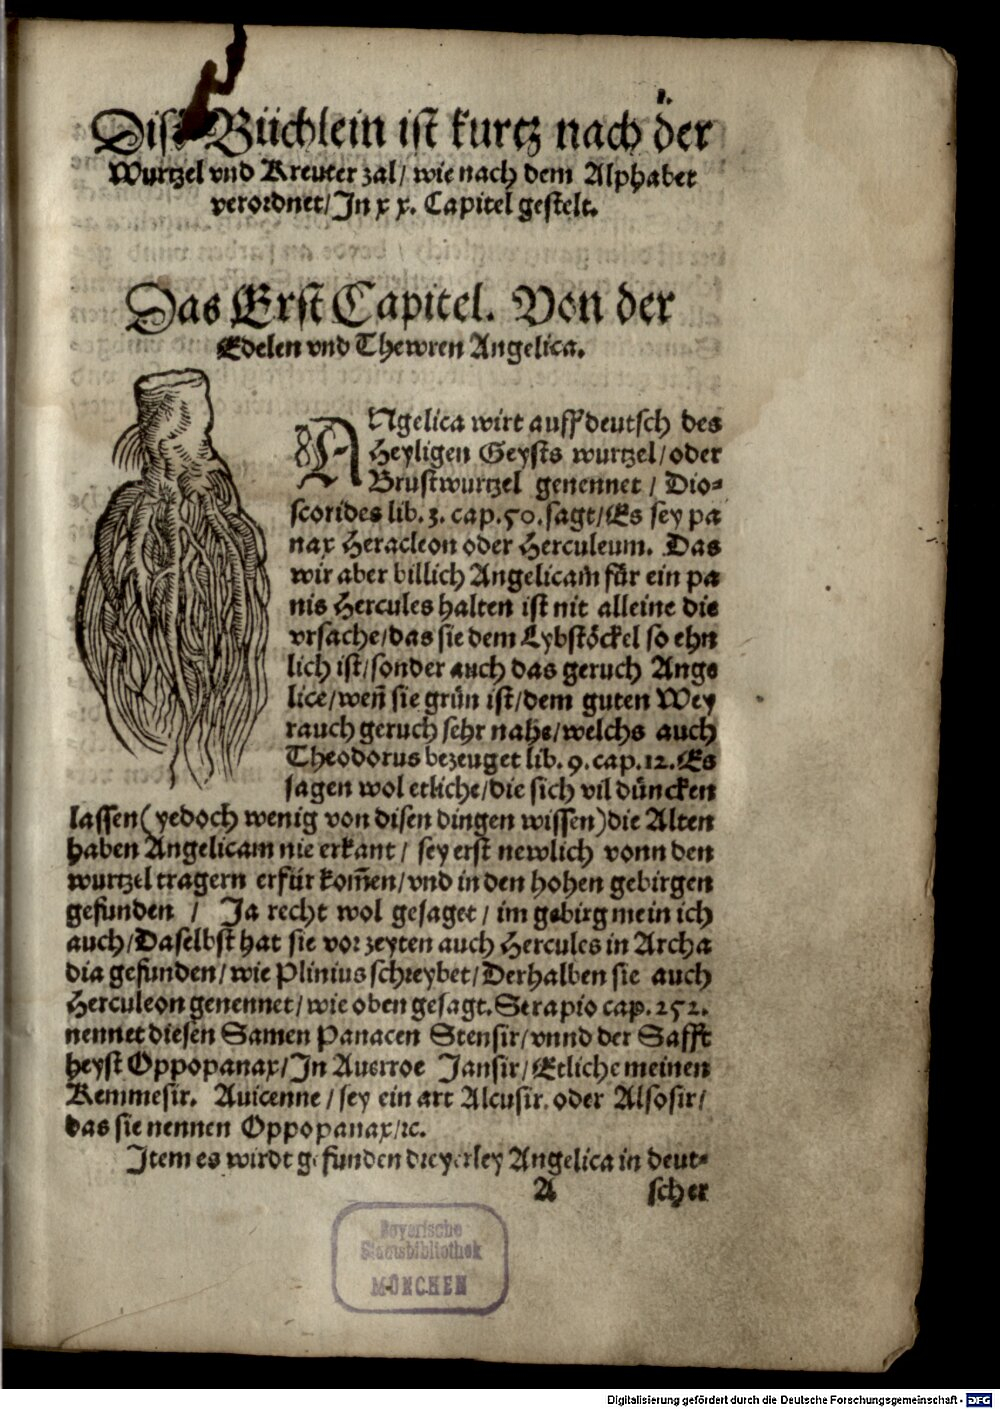 Diß Büchlein ist kurtz nach der
Wurtzel vnd Kreuter zal/ wie nach dem Alphabet
verordnet/ In x x. Capitel gestelt.
Das Erst Capitel. Von der
Edelen vnd Thewren Angelica.
ANgelica wirt auff deutsch des
Heyligen Geysts wurtzel/ oder
Brustwurtzel genennet/ Dio⸗
scorides lib. 3. cap. 50. sagt/ Es sey pa
nax Heracleon oder Herculeum. Das
wir aber billich Angelicam für ein pa
nis Hercules halten ist nit alleine die
vrsache/ das sie dem Lybstöckel so ehn
lich ist/ sonder auch das geruch Ange
lice/ wen̄ sie grün ist/ dem guten Wey
rauch geruch sehr nahe/ welchs auch
Theodorus bezeuget lib. 9. cap. 12. Es
sagen wol etliche/ die sich vil düncken
lassen (yedoch wenig von disen dingen wissen) die Alten
haben Angelicam nie erkant/ sey erst newlich vonn den
wurtzel tragern erfür kom̄en/ vnd in den hohen gebirgen
gefunden / Ja recht wol gesaget/ im gebirg mein ich
auch/ Daselbst hat sie vor zeyten auch Hercules in Archa
dia gefunden/ wie Plinius schreybet/ Derhalben sie auch
Herculeon genennet/ wie oben gesagt. Serapio cap. 252.
nennet diesen Samen Panacen Stensir/ vnnd der Safft
heyst Oppopanax/ In Auerroe Jansir/ Etliche meinen
Kemmesir. Auicenne/ sey ein art Alcusir. oder Alsosir/
das sie nennen Oppopanax/ ꝛc.
Item es wirdt gefunden dreyerley Angelica in deut⸗
A scher
Bayerische
Staatsbibliothek
MÜNCHEN
Digitalisierung gefördert durch die Deutsche Forschungsgemeinschaft - DFG